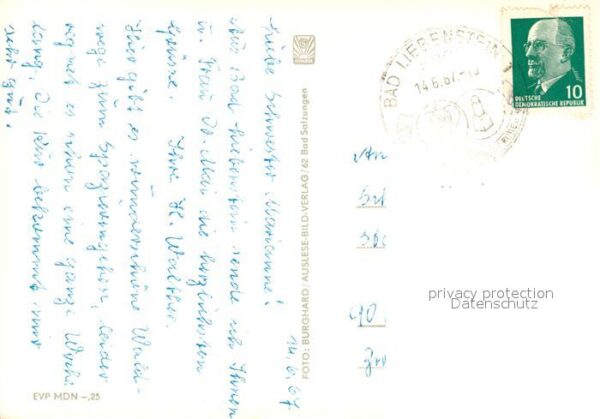 14.6.67
Liebe Schwester Marianne!
Aus Bad Liebenstein sende ich Ihnen
u. Frau W. Mai die herzlichsten
Grüsse. Ihre H. Walther.
Hier gibt es wunderschöne Wald-
wege zum Spazierengehen, leider
regnet es schon eine ganze Woche
lang. Die Kur bekommt mir
sehr gut.
EVP MDN -,25
FOTO: BURGHARD/AUSLESE-BILD-VERLAG/62 Bad Salzungen
BAD LIEBENSTEIN 1
14.6.67
10
DEUTSCHE
DEMOKRATISCHE REPUBLIK
An
privacy protection
Datenschutz